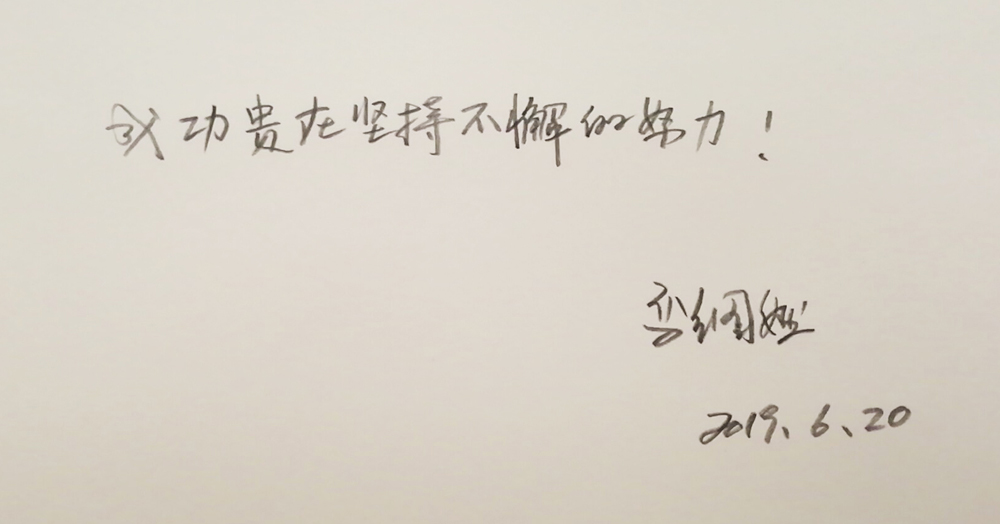 成功贵在坚持不懈的努力！
2019.6.20